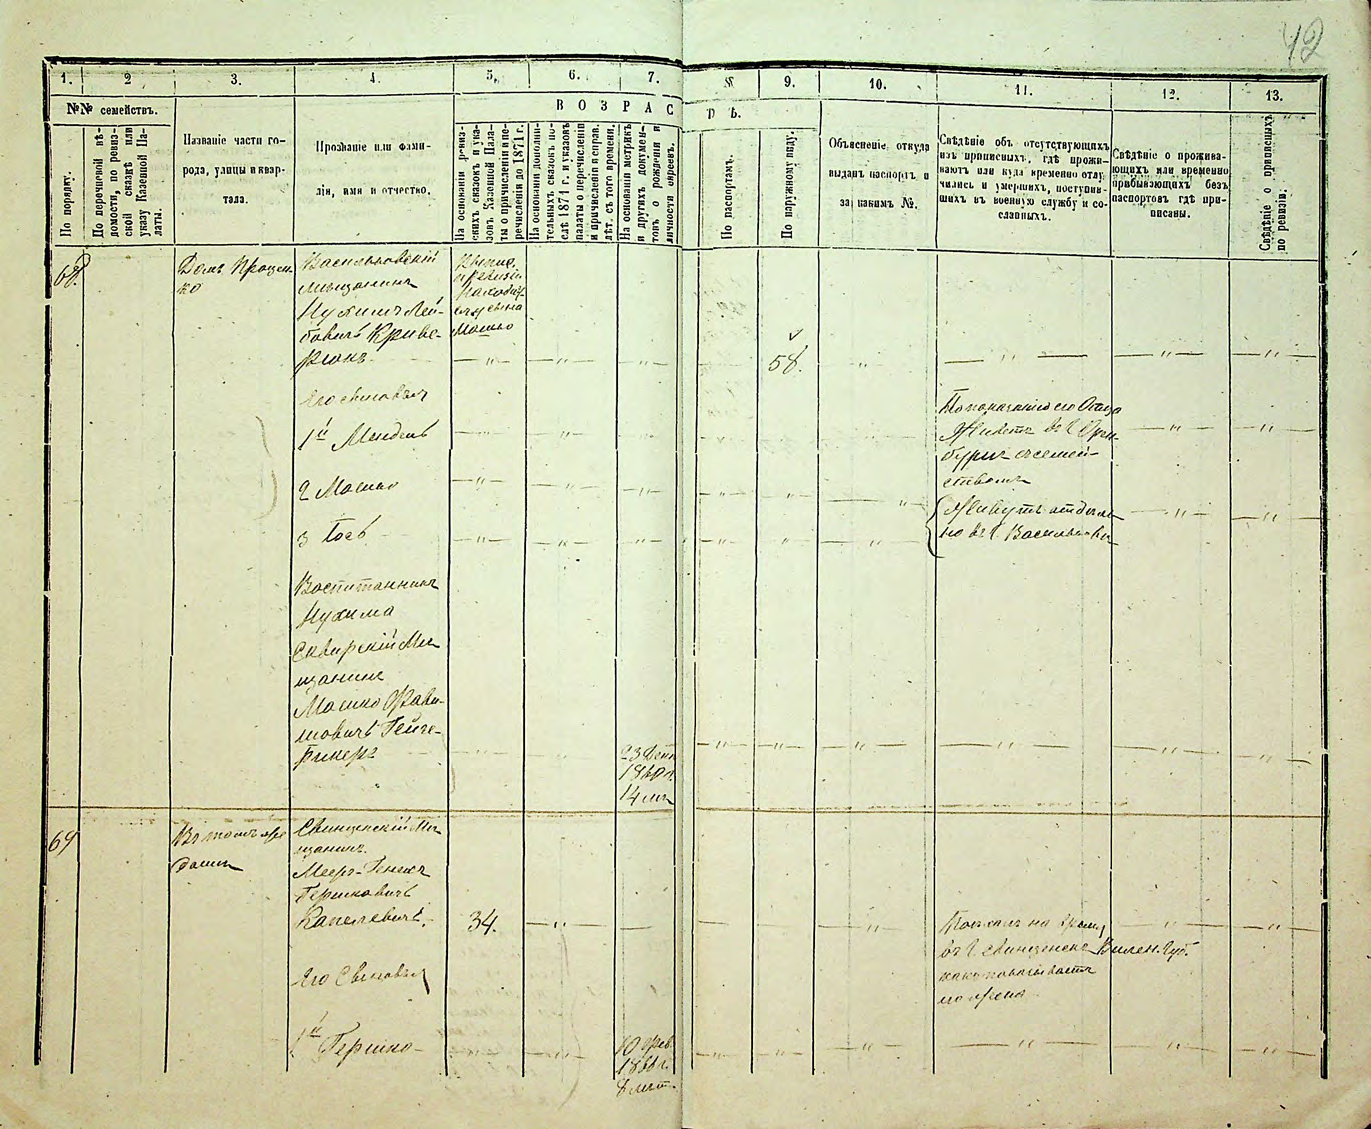 42
1. 2 3. 4. 5. 6. 7. 8 9. 10. 11. 12. 13.
№№ семействъ.
По порядку.
По перечневой вѣ-
домости, по ревиз-
ской сказкѣ или
указу Казенной Па-
латы.
Названіе части го-
рода, улицы и квар-
тала.
Прозваніе или фами-
лія, имя и отчество.
ВОЗРАСТЪ.
На основаніи ревиз-
скихъ сказокъ и ука-
зовъ Казенной Пала-
ты о причисленіи и пе-
речисленіи до 1871 г.
На основаніи дополни-
тельныхъ сказокъ по-
слѣ 1871 г. и указовъ
палаты о перечисленіи
и причисленіи и справ.
лѣт. съ того времени.
На основаніи метрикъ
и другихъ докумен-
товъ о рожденіи и
личности евреевъ.
По паспортамъ.
По наружному виду.
Объясненіе откуда
выданъ паспортъ и
за какимъ №.
Свѣдѣніе объ отсутствующихъ
изъ приписныхъ, гдѣ прожи-
ваютъ или куда временно отлу-
чились и умершихъ, поступив-
шихъ въ военную службу и со-
сланныхъ.
Свѣдѣніе о прожива-
ющихъ или временно
прибывающихъ безъ
паспортовъ гдѣ при-
писаны.
Свѣдѣніе о приписныхъ
по ревизіи.
68.
Домъ Процен-
ко
Васильковскій
мѣщанинъ
Нухимъ Лей-
бовичъ Криве-
Мошко
58.
Его сыновья
1й Мендель
По показанію его Отца
Живетъ въ г. Орен-
бургѣ съ семей-
ствомъ
2 Мошко
3 Іосъ
Живутъ отдѣль-
но въ г. Васильковѣ
Воспитанникъ
Нухима
Сквирскій Мѣ-
щанинъ
Мошко
23 Сент.
1860 г.
14 лѣт.
69
Въ томъ же
домѣ
Свинцянскій Мѣ-
щанинъ
Мееръ-Генехъ
Гершковичъ
Капелевичъ.
34.
въ г. Свинцянске Вилен. Губ.
какъ показываетъ
его жена
Его Сыновья
1й Гершко
10 Фев.
1868 г.
8 лѣт.